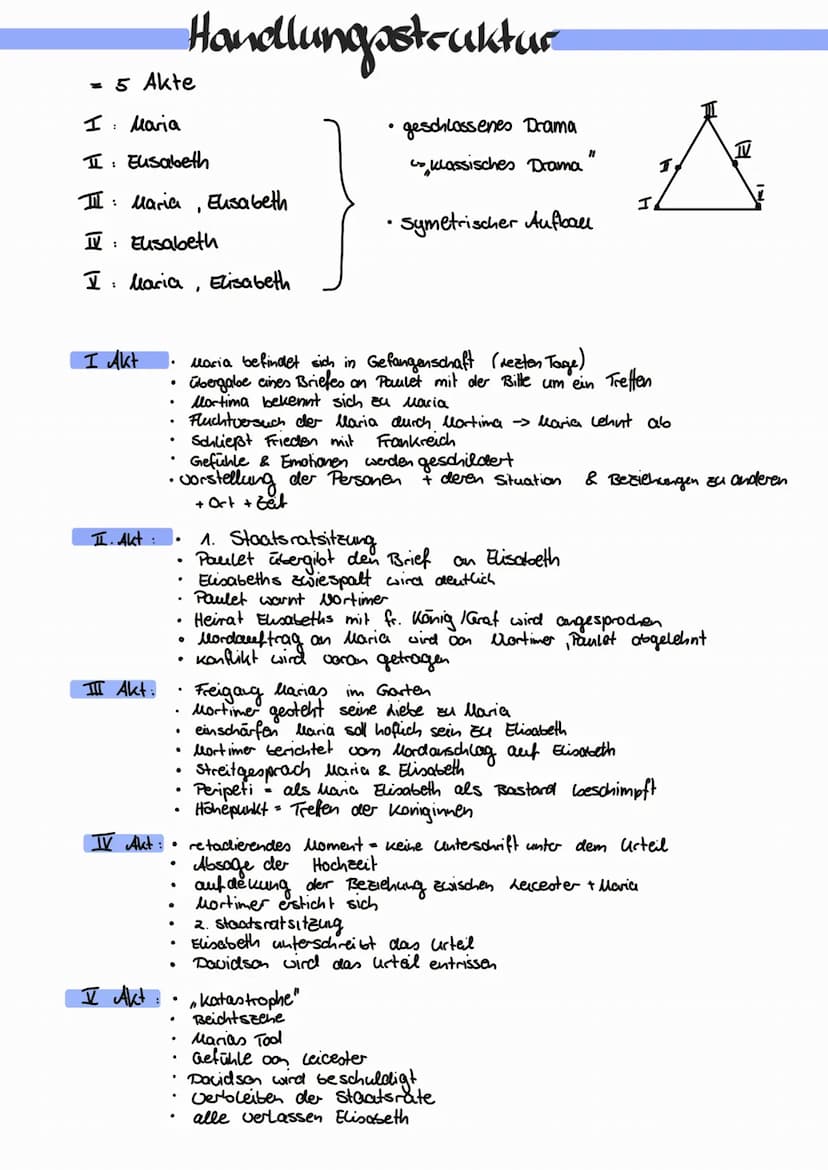 Handlungsstruktur
= 5 Akte
I : Maria
II : Elisabeth
III : Maria , Elisabeth
IV : Elisabeth
V : Maria , Elisabeth
• geschlossenes Drama
↳ „klassisches Drama"
• symetrischer Aufbau
I
II
III
IV
V
I Akt • Maria befindet sich in Gefangenschaft (letzten Tage)
• Übergabe eines Briefes an Paulet mit der Bitte um ein Treffen
• Mortima bekennt sich zu Maria
• Fluchtversuch der Maria durch Mortima -> Maria lehnt ab
• Schließt Frieden mit Frankreich
• Gefühle & Emotionen werden geschildert
• Vorstellung der Personen + deren Situation & Beziehungen zu anderen
+ Ort + Zeit
II. Akt : • 1. Staatsratsitzung
• Paulet übergibt den Brief an Elisabeth
• Elisabeths zwiespalt wird deutlich
• Paulet warnt Mortimer
• Heirat Elisabeths mit fr. König /Graf wird angesprochen
• Mordauftrag an Maria wird von Mortimer, Paulet abgelehnt
• Konflikt wird voran getragen
III Akt: • Freigang Marias im Garten
• Mortimer gesteht seine Liebe zu Maria
• einschärfen Maria soll hoflich sein zu Elisabeth
• Mortimer berichtet vom Mordanschlag auf Elisabeth
• Streitgesprach Maria & Elisabeth
• Peripeti = als Maria Elisabeth als Bastard beschimpft
• Höhepunkt = Trefen der Königinnen
IV Akt : • retadierendes Moment = keine Unterschrift unter dem Urteil
• Absage der Hochzeit
• aufdekung der Beziehung zwischen Leicester + Maria
• Mortimer ersticht sich
• 2. Staatsratsitzung
• Elisabeth unterschreibt das Urteil
• Davidson wird das Urteil entrissen
V Akt : • „Katastrophe"
• Beichtszene
• Marias Tod
• Gefühle von Leicester
• Davidson wird beschuldigt
• Verbleiben der Staatsräte
• alle verlassen Elisabeth